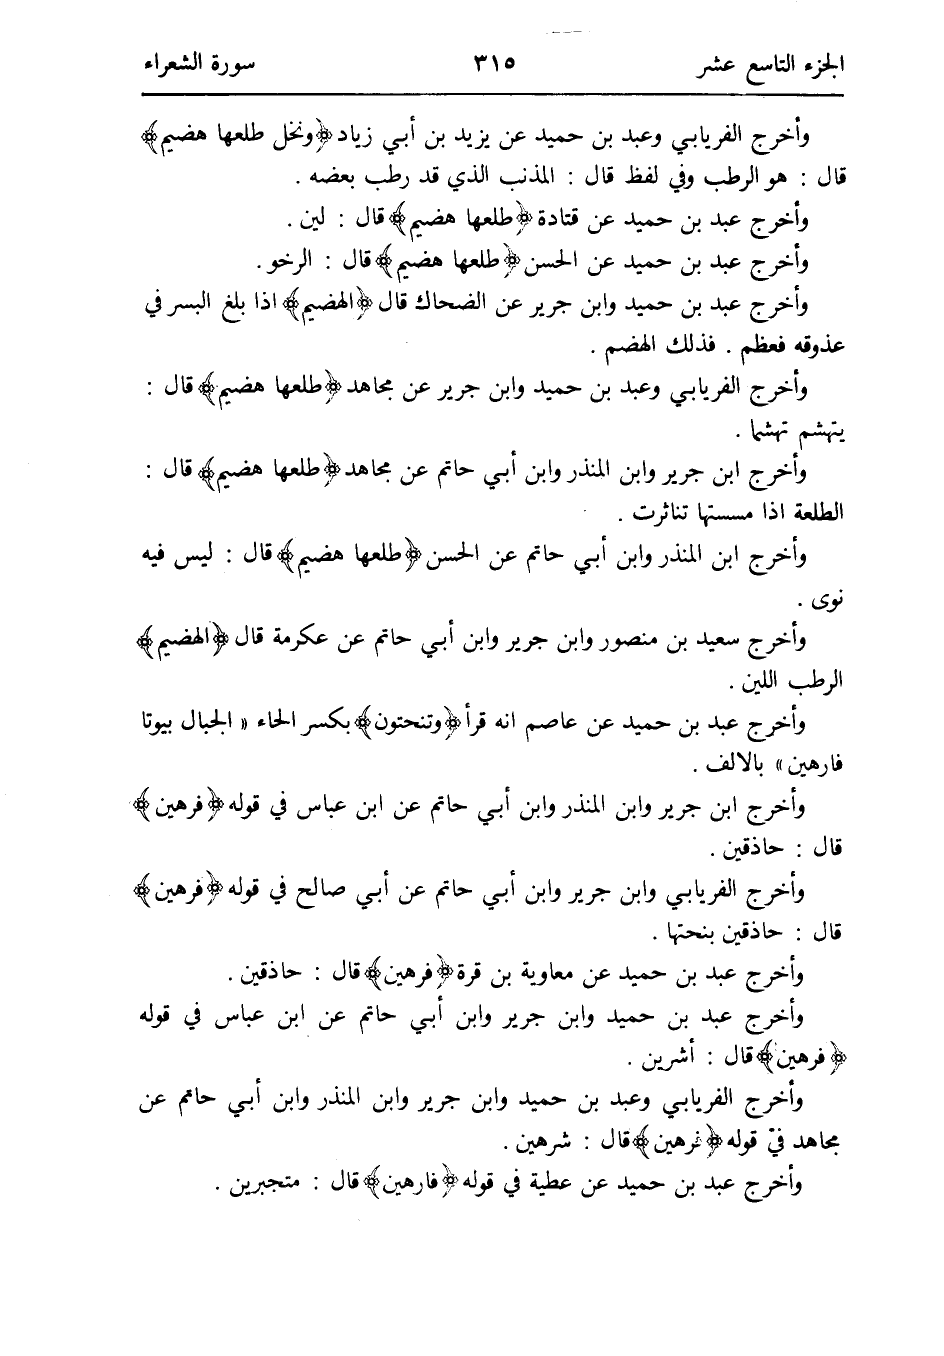 الجزء التاسع عشر ٣١٥ سورة الشعراء
وأخرج الفريابي وعبد بن حميد عن يزيد بن أبي زياد ﴿ونخل طلعها هضيم﴾
قال : هو الرطب وفي لفظ قال : المذنب الذي قد رطب بعضه .
وأخرج عبد بن حميد عن قتادة ﴿طلعها هضيم﴾ قال : لين .
وأخرج عبد بن حميد عن الحسن ﴿طلعها هضيم﴾ قال : الرخو .
وأخرج عبد بن حميد وابن جرير عن الضحاك قال ﴿الهضيم﴾ اذا بلغ البسر في
عذوقه فعظم . فذلك الهضم .
وأخرج الفريابي وعبد بن حميد وابن جرير عن مجاهد ﴿طلعها هضيم﴾ قال :
يتهشم تهشما .
وأخرج ابن جرير وابن المنذر وابن أبي حاتم عن مجاهد ﴿طلعها هضيم﴾ قال :
الطلعة اذا مسستها تناثرت .
وأخرج ابن المنذر وابن أبي حاتم عن الحسن ﴿طلعها هضيم﴾ قال : ليس فيه
نوى .
وأخرج سعيد بن منصور وابن جرير وابن أبي حاتم عن عكرمة قال ﴿الهضيم﴾
الرطب اللين .
وأخرج عبد بن حميد عن عاصم انه قرأ ﴿وتنحتون﴾ بكسر الحاء « الجبال بيوتا
فارهين» بالالف .
وأخرج ابن جرير وابن المنذر وابن أبي حاتم عن ابن عباس في قوله ﴿فرهين﴾
قال : حاذقين .
وأخرج الفريابي وابن جرير وابن أبي حاتم عن أبي صالح في قوله ﴿فرهين﴾
قال : حاذقين بنحتها .
وأخرج عبد بن حميد عن معاوية بن قرة ﴿فرهين﴾ قال : حاذقين .
وأخرج عبد بن حميد وابن جرير وابن أبي حاتم عن ابن عباس في قوله
﴿فرهين﴾ قال : أشرين .
وأخرج الفريابي وعبد بن حميد وابن جرير وابن المنذر وابن أبي حاتم عن
مجاهد في قوله ﴿غرهين﴾ قال : شرهين .
وأخرج عبد بن حميد عن عطية في قوله ﴿فارهين﴾ قال : متجبرين .